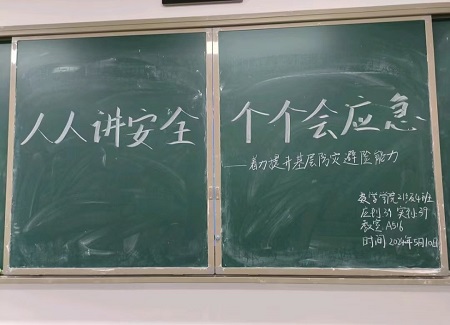 人人讲安全 个个会应急
——着力提升基层防灾避险能力
数学学院21级4班
应到31 实到31
教室 A516
时间 2024年5月10日